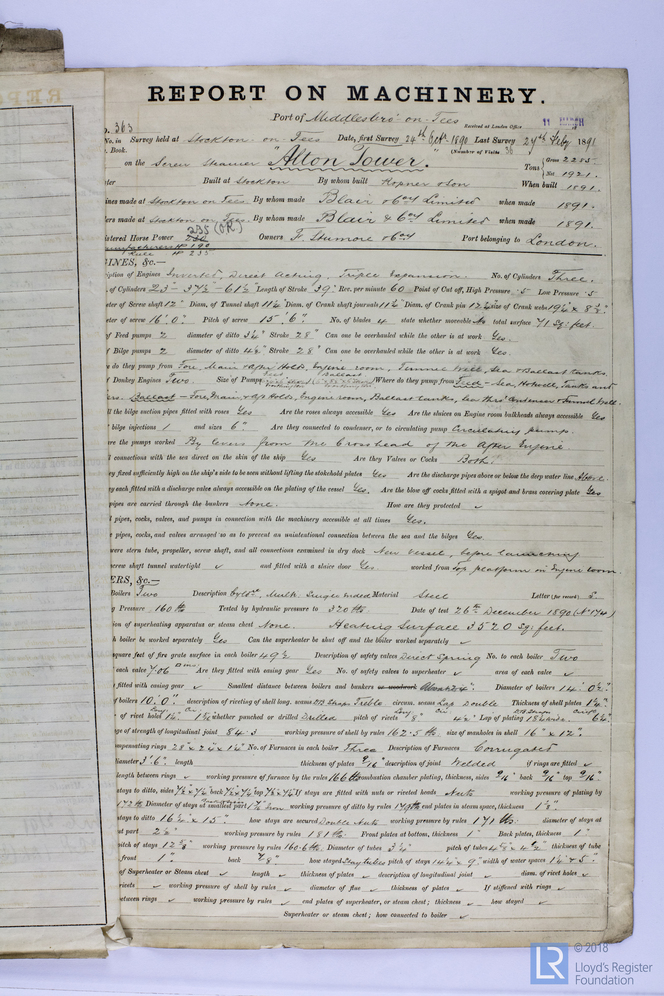 REPORT ON MACHINERY.
Port of Middlesbro' on Tees
Received at London Office
No. 363
No. in Survey held at Stockton on Tees Date, first Survey 24th Sept. 1890 Last Survey 27th Feby 1891
Book. (Number of Visits 36
on the Screw Steamer "Alton Tower." Tons Gross 2285 Net 1921
Built at Stockton By whom built Ropner & Son When built 1891.
ines made at Stockton on Tees. By whom made Blair & Coy Limited when made 1891.
ers made at Stockton on Tees. By whom made Blair & Coy Limited when made 1891.
istered Horse Power 235 (OR) Owners F. Stumore & Coy Port belonging to London.
INES, &c.—
iption of Engines Inverted, Direct Acting, Triple Expansion. No. of Cylinders Three.
of Cylinders 23 - 37½ - 61½ Length of Stroke 39" Rev. per minute 60 Point of Cut off, High Pressure .5 Low Pressure .5
ter of Screw shaft 12" Diam. of Tunnel shaft 11¼ Diam. of Crank shaft journals 11¾ Diam. of Crank pin size of Crank webs
ter of screw 16'.0" Pitch of screw 15'.6" No. of blades 4 state whether moveable No total surface 71 Sq: feet
of Feed pumps 2 diameter of ditto 3¼" Stroke 28" Can one be overhauled while the other is at work Yes.
of Bilge pumps 2 diameter of ditto Stroke 28" Can one be overhauled while the other is at work Yes.
do they pump from Fore, Main & After Holds, Engine room, Tunnel Well, Sea & Ballast tanks.
of Donkey Engines Two Size of Pumps Where do they pump from Feed - Sea, Hotwell, Tanks and
Ballast - Fore, Main & Aft Holds, Engine room, Ballast tanks, Sea thro' Condenser & Tunnel Well.
ll the bilge suction pipes fitted with roses Yes Are the roses always accessible Yes Are the sluices on Engine room bulkheads always accessible Yes
bilge injections 1 and sizes 6" Are they connected to condenser, or to circulating pump Circulating pump.
re the pumps worked By levers from the Crosshead of the After Engine
l connections with the sea direct on the skin of the ship Yes Are they Valves or Cocks Both.
ey fixed sufficiently high on the ship's side to be seen without lifting the stokehold plates Yes Are the discharge pipes above or below the deep water line Above.
ey each fitted with a discharge valve always accessible on the plating of the vessel Yes. Are the blow off cocks fitted with a spigot and brass covering plate Yes
pipes are carried through the bunkers None. How are they protected ✓
l pipes, cocks, valves, and pumps in connection with the machinery accessible at all times Yes.
e pipes, cocks, and valves arranged so as to prevent an unintentional connection between the sea and the bilges Yes.
were stern tube, propeller, screw shaft, and all connections examined in dry dock New vessel, before launching
screw shaft tunnel watertight ✓ and fitted with a sluice door Yes worked from Top platform in Engine room.
ERS, &c.—
Boilers Two Description Cyldl. Mult. Single ended Material Steel Letter (for record) S
g Pressure 160 lb Tested by hydraulic pressure to 320 lb. Date of test 26th December 1890 (No 1174)
ion of superheating apparatus or steam chest None. Heating Surface 3520 sq: feet.
h boiler be worked separately Yes Can the superheater be shut off and the boiler worked separately ✓
square feet of fire grate surface in each boiler 49½ Description of safety valves Direct Spring No. to each boiler Two
each valve 7.06 Are they fitted with easing gear Yes No. of safety valves to superheater ✓ area of each valve ✓
fitted with easing gear ✓ Smallest distance between boilers and bunkers Diameter of boilers
of boilers 10'.0" description of riveting of shell long. seams Treble circum. seams Lap Double Thickness of shell plates
r of rivet holes whether punched or drilled Drilled pitch of rivets Lap of plating
age of strength of longitudinal joint 84.3 working pressure of shell by rules 162.5 lb. size of manholes in shell 16" x 12".
ompensating rings No. of Furnaces in each boiler Three Description of Furnaces Corrugated
diameter 3'.6" length thickness of plates 9/16" description of joint Welded if rings are fitted ✓
length between rings ✓ working pressure of furnace by the rules 166 lb combustion chamber plating, thickness, sides 9/16" back 9/16" top 9/16"
stays to ditto, sides back top If stays are fitted with nuts or riveted heads Nuts working pressure of plating by
172 lb Diameter of stays at smallest part working pressure of ditto by rules end plates in steam space, thickness
stays to ditto 16¼ x 15" how stays are secured Double Nuts working pressure by rules 171 lb: diameter of stays at
st part working pressure by rules 181 lb: Front plates at bottom, thickness 1" Back plates, thickness 1"
pitch of stays working pressure by rules 160.6 lb. Diameter of tubes 3¼" pitch of tubes thickness of tube
front 1" back 7/8" how stayed Stay tubes pitch of stays width of water spaces
of Superheater or Steam chest ✓ length ✓ thickness of plates ✓ description of longitudinal joint ✓ diam. of rivet holes ✓
rivets ✓ working pressure of shell by rules ✓ diameter of flue ✓ thickness of plates ✓ If stiffened with rings ✓
etween rings ✓ working pressure by rules ✓ end plates of superheater, or steam chest; thickness ✓ how stayed ✓
Superheater or steam chest; how connected to boiler ✓
LR
© 2018
Lloyd's Register
Foundation